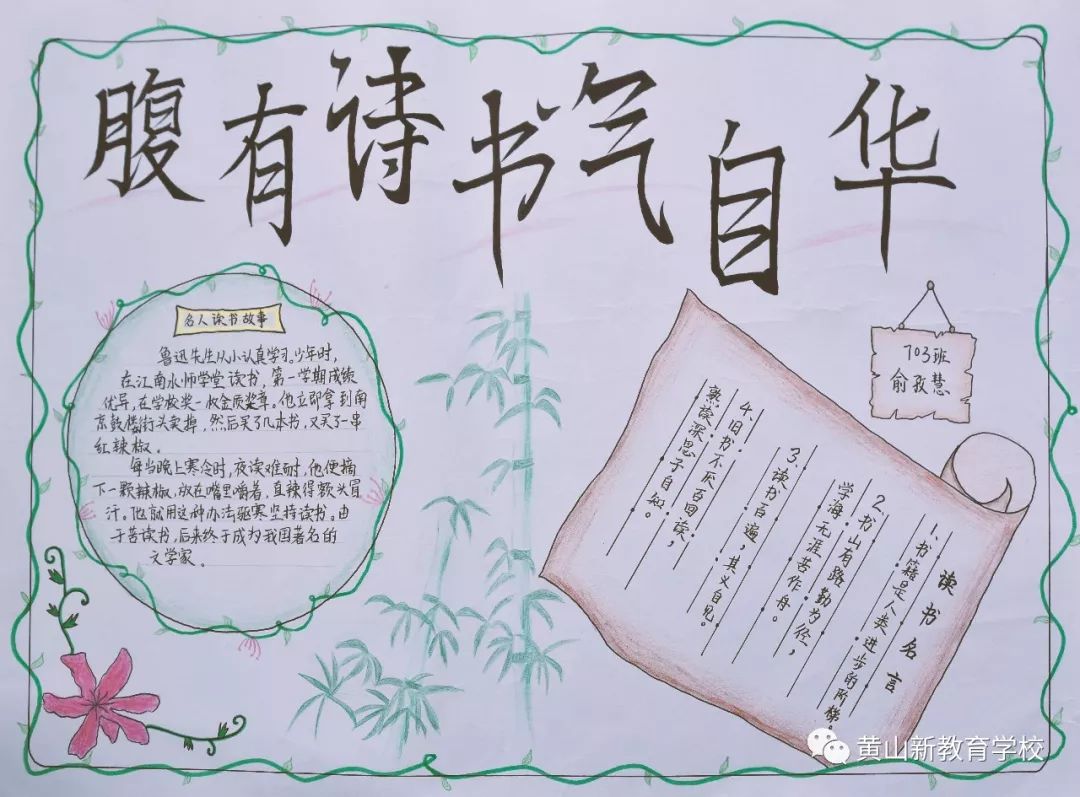 腹有诗书气自华
名人读书故事
鲁迅先生从小认真学习。少年时,
在江南水师学堂读书,第一学期成绩
优异,在学校奖一枚金质奖章。他立即拿到南
京鼓楼街头卖掉,然后买了几本书,又买了一串
红辣椒。
每当晚上寒冷时,夜读难耐,他便摘
下一颗辣椒,放在嘴里嚼着,直辣得额头冒
汗。他就用这种办法驱寒坚持读书。由
于苦读书,后来终于成为我国著名的
文学家。
703班
俞孜慧
读书名言
1、书籍是人类进步的阶梯。
2、书山有路勤为径,
学海无涯苦作舟。
3、读书百遍,其义自见。
4、旧书不厌百回读,
熟读深思子自知。
黄山新教育学校